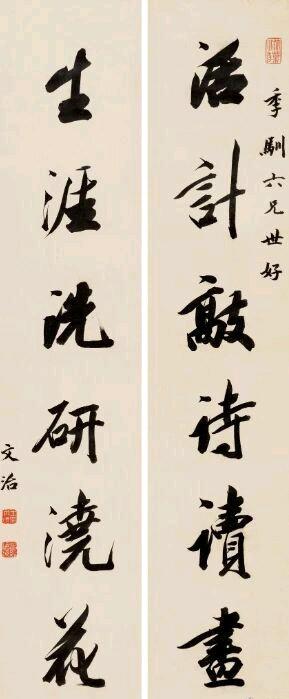 季馴六兄世好
活計敲詩讀畫
生涯洗研澆花
文治